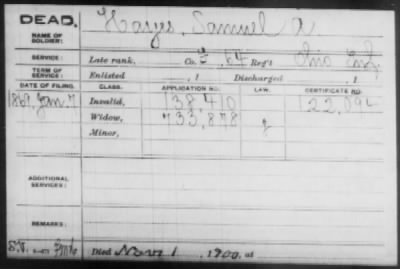 DEAD.
NAME OF SOLDIER: Hayes, Samuel A.
SERVICE: Late rank, Co. 64 Reg't Ohio Inf.
TERM OF SERVICE: Enlisted , 1 Discharged , 1
DATE OF FILING. CLASS. APPLICATION NO. LAW. CERTIFICATE NO.
1869 Jan. 7 Invalid, 138,410 122,094
Widow, 733,878
Minor,
ADDITIONAL SERVICES:
REMARKS:
Died Nov 1, 1900, at